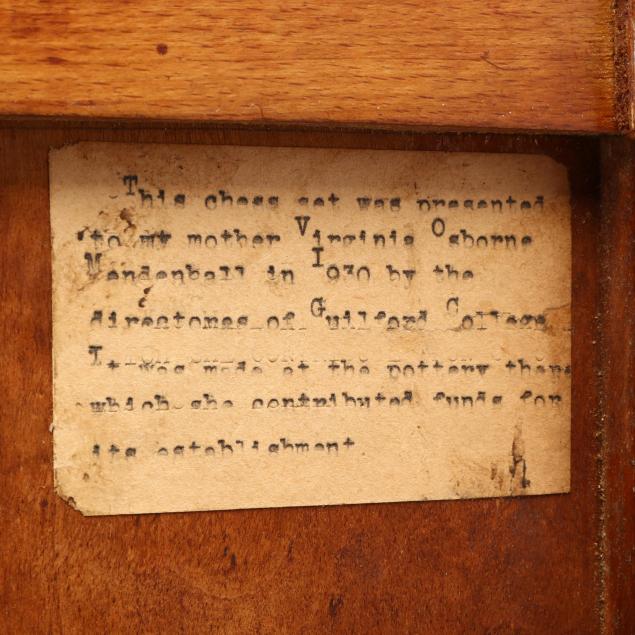 This chess set was presented
to my mother Virginia Osborne
Mendenhall in I930 by the
directomas of Guilford College
It was made at the pottery there
which she contributed funds for
its establishment